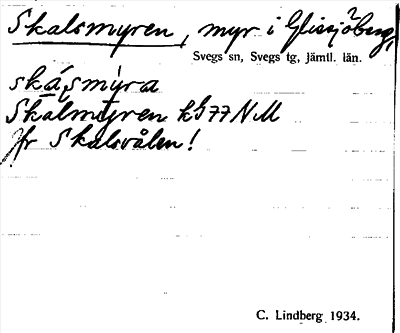 Skalsmyren, myr i Glissjöberg,
Svegs sn, Svegs tg, jämtl. län.
skáʃmỳra
Skalmyren kG77NM
Jfr Skalsvålen!
C. Lindberg 1934.